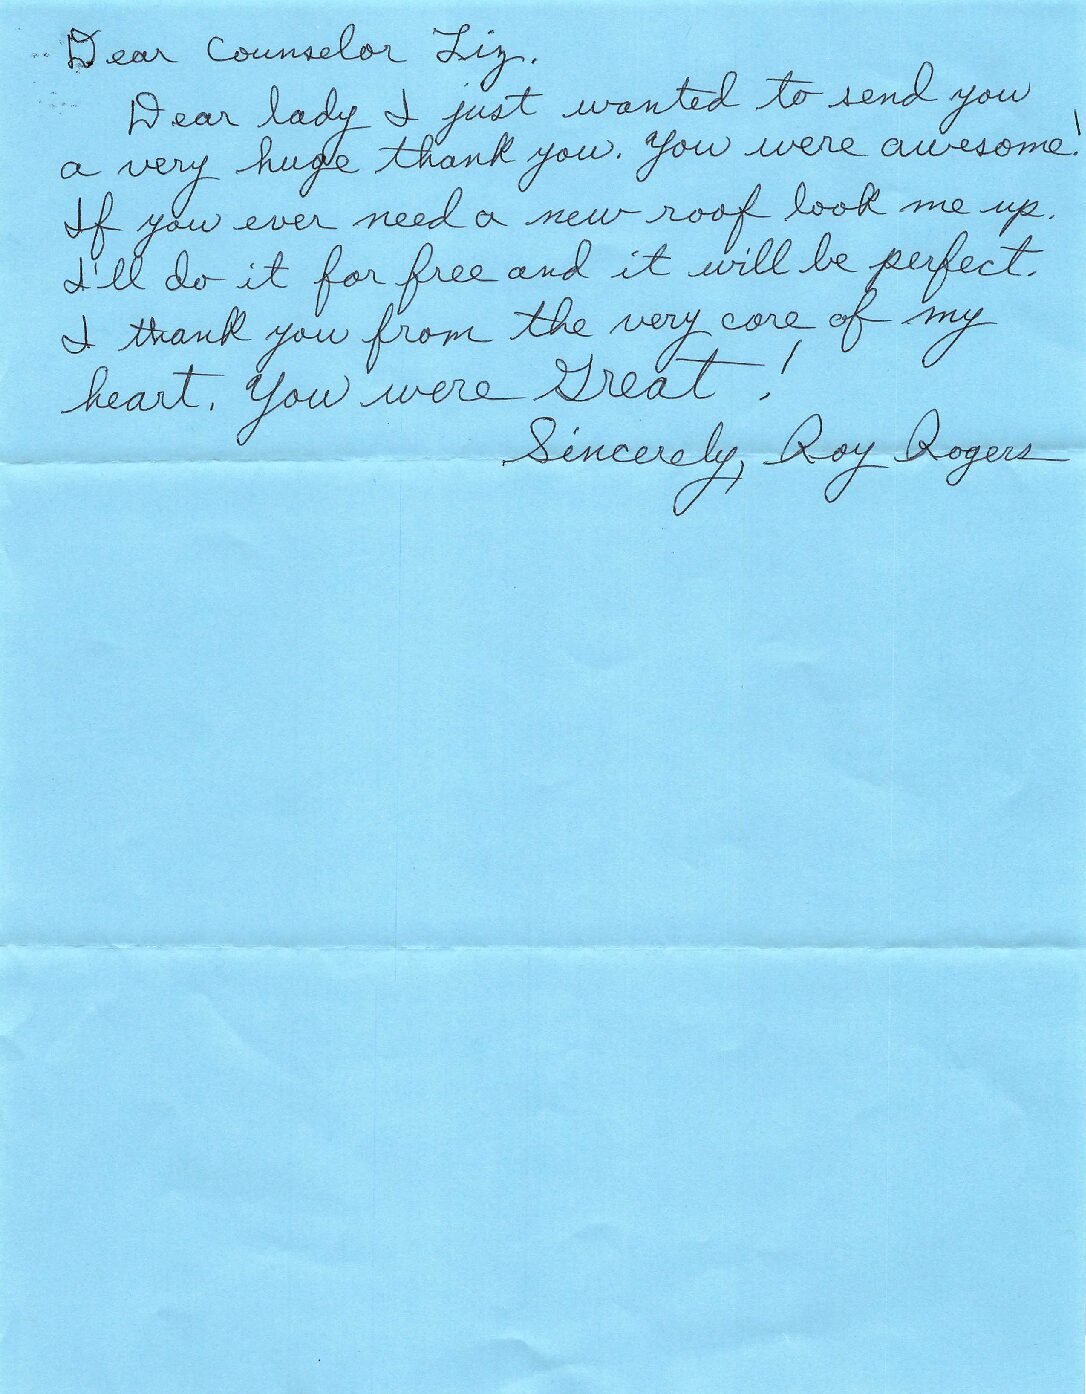 Dear Counselor Liz.
Dear lady I just wanted to send you
a very huge thank you. You were awesome!
If you ever need a new roof look me up.
I'll do it for free and it will be perfect.
I thank you from the very core of my
heart. You were Great!
Sincerely, Roy Rogers